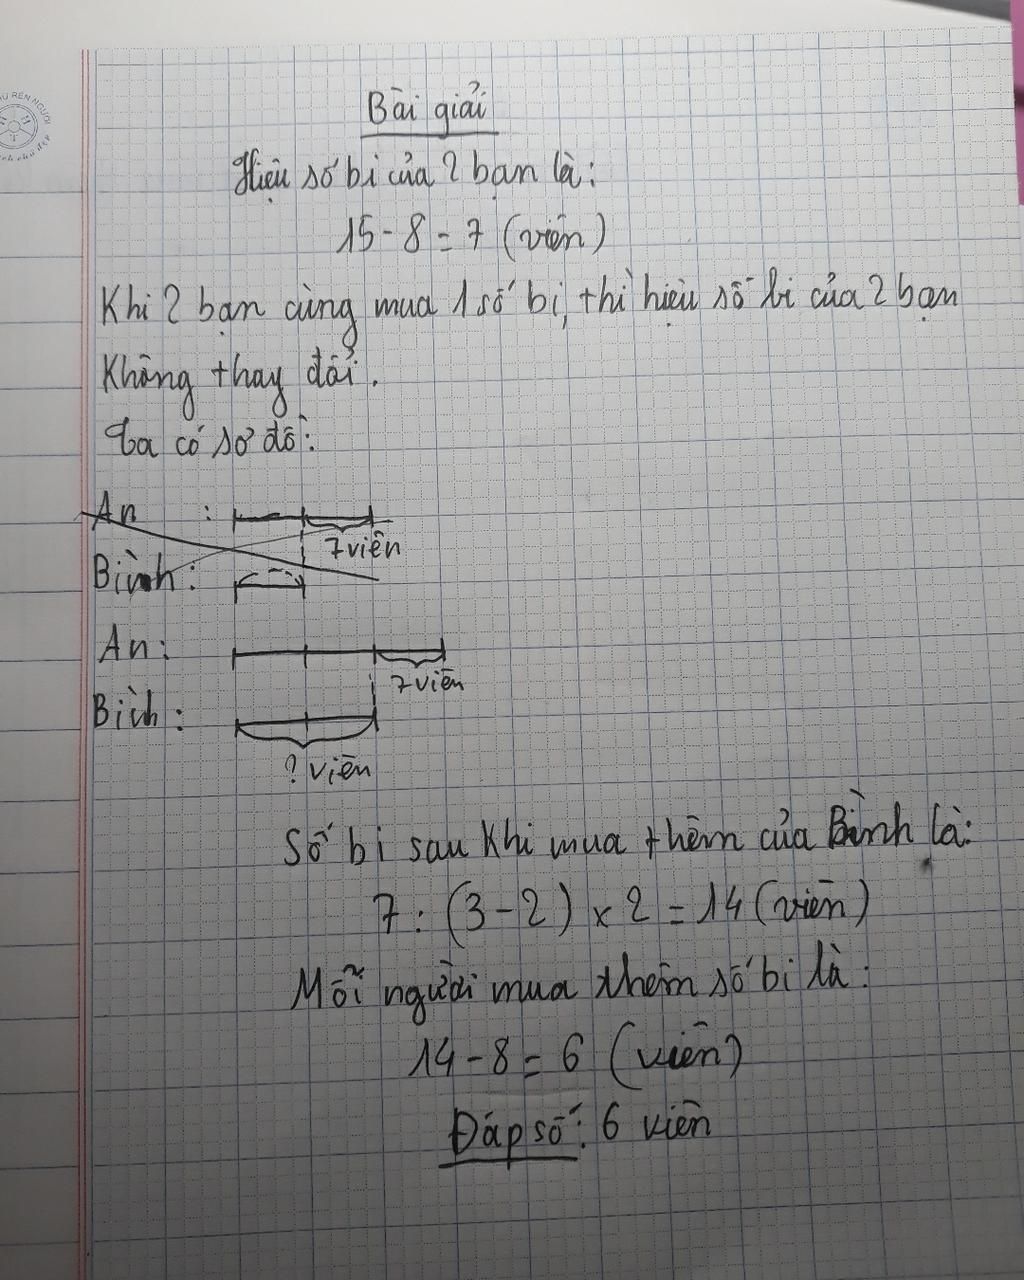 Bài giải
Hiệu số bi của 2 bạn là:
15 - 8 = 7 (viên)
Khi 2 bạn cùng mua 1 số bi, thì hiệu số bi của 2 bạn
không thay đổi.
Ta có sơ đồ:
An :
7 viên
Bình :
An :
7 viên
Bình :
? viên
Số bi sau khi mua thêm của Bình là:
7 : (3 - 2) x 2 = 14 (viên)
Mỗi người mua thêm số bi là:
14 - 8 = 6 (viên)
Đáp số: 6 viên